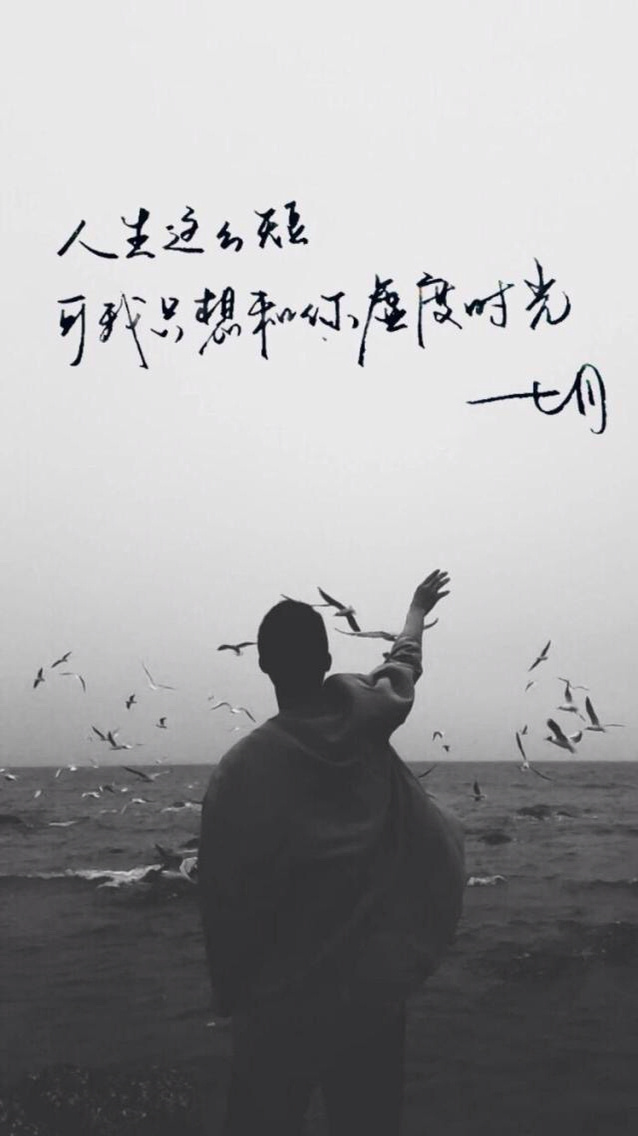 人生这么短
可我只想和你虚度时光
一七月